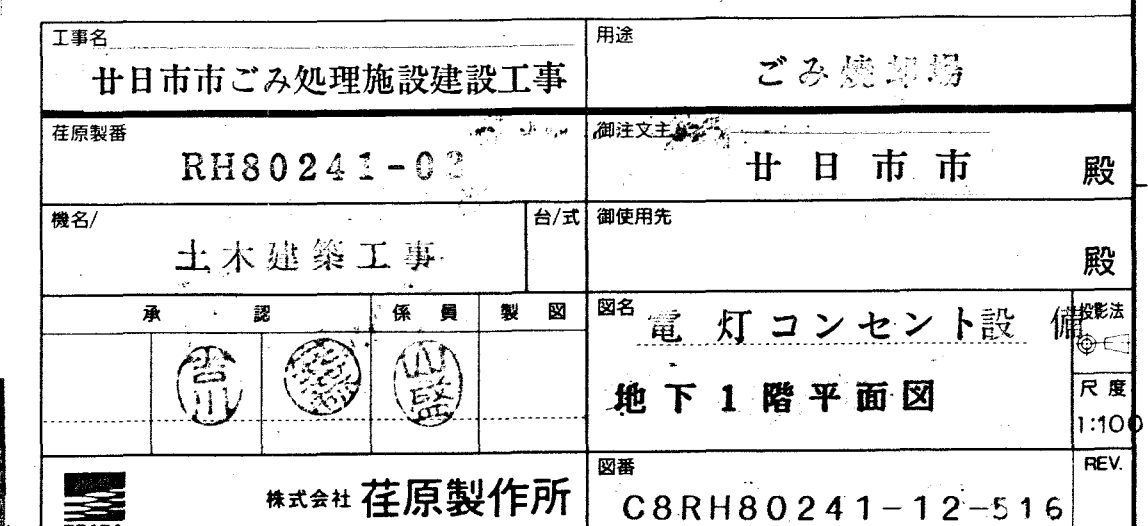 工事名
廿日市市ごみ処理施設建設工事
用途
ごみ焼却場
荏原製番
RH80241-03
御注文主
廿日市市 殿
機名/
土木建築工事
台/式
御使用先
殿
承認
係員
製図
図名
電灯コンセント設備
地下1階平面図
投影法
尺度
1:100
株式会社 荏原製作所
図番
C8RH80241-12-516
REV.